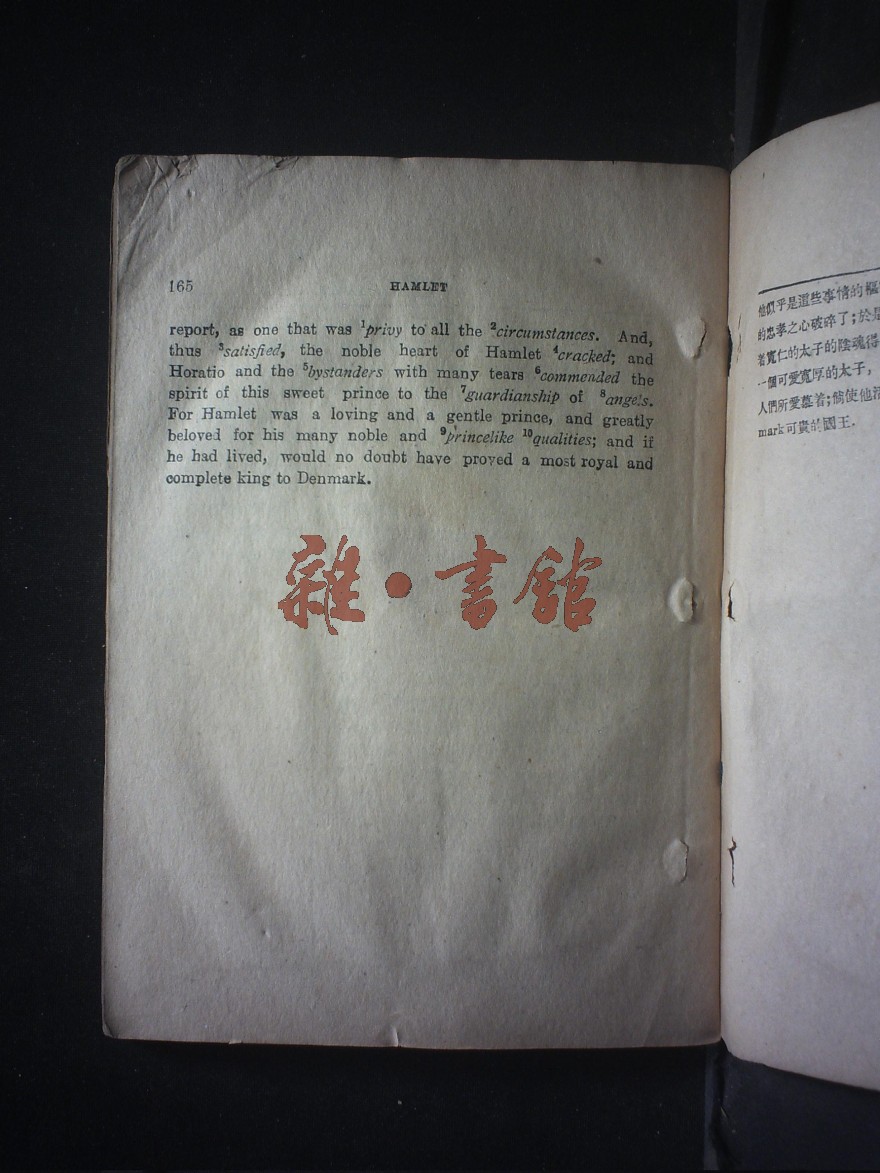 165
HAMLET
report, as one that was ¹privy to all the ²circumstances. And,
thus ³satisfied, the noble heart of Hamlet ⁴cracked; and
Horatio and the ⁵bystanders with many tears ⁶commended the
spirit of this sweet prince to the ⁷guardianship of ⁸angels.
For Hamlet was a loving and a gentle prince, and greatly
beloved for his many noble and ⁹princelike ¹⁰qualities; and if
he had lived, would no doubt have proved a most royal and
complete king to Denmark.
雜·書館
他似乎是這些事情的樞
的忠孝之心破碎了;於是
着寬仁的太子的陰魂得
一個可愛寬厚的太子,
人們所愛慕着;倘使他活
mark可貴的國王.